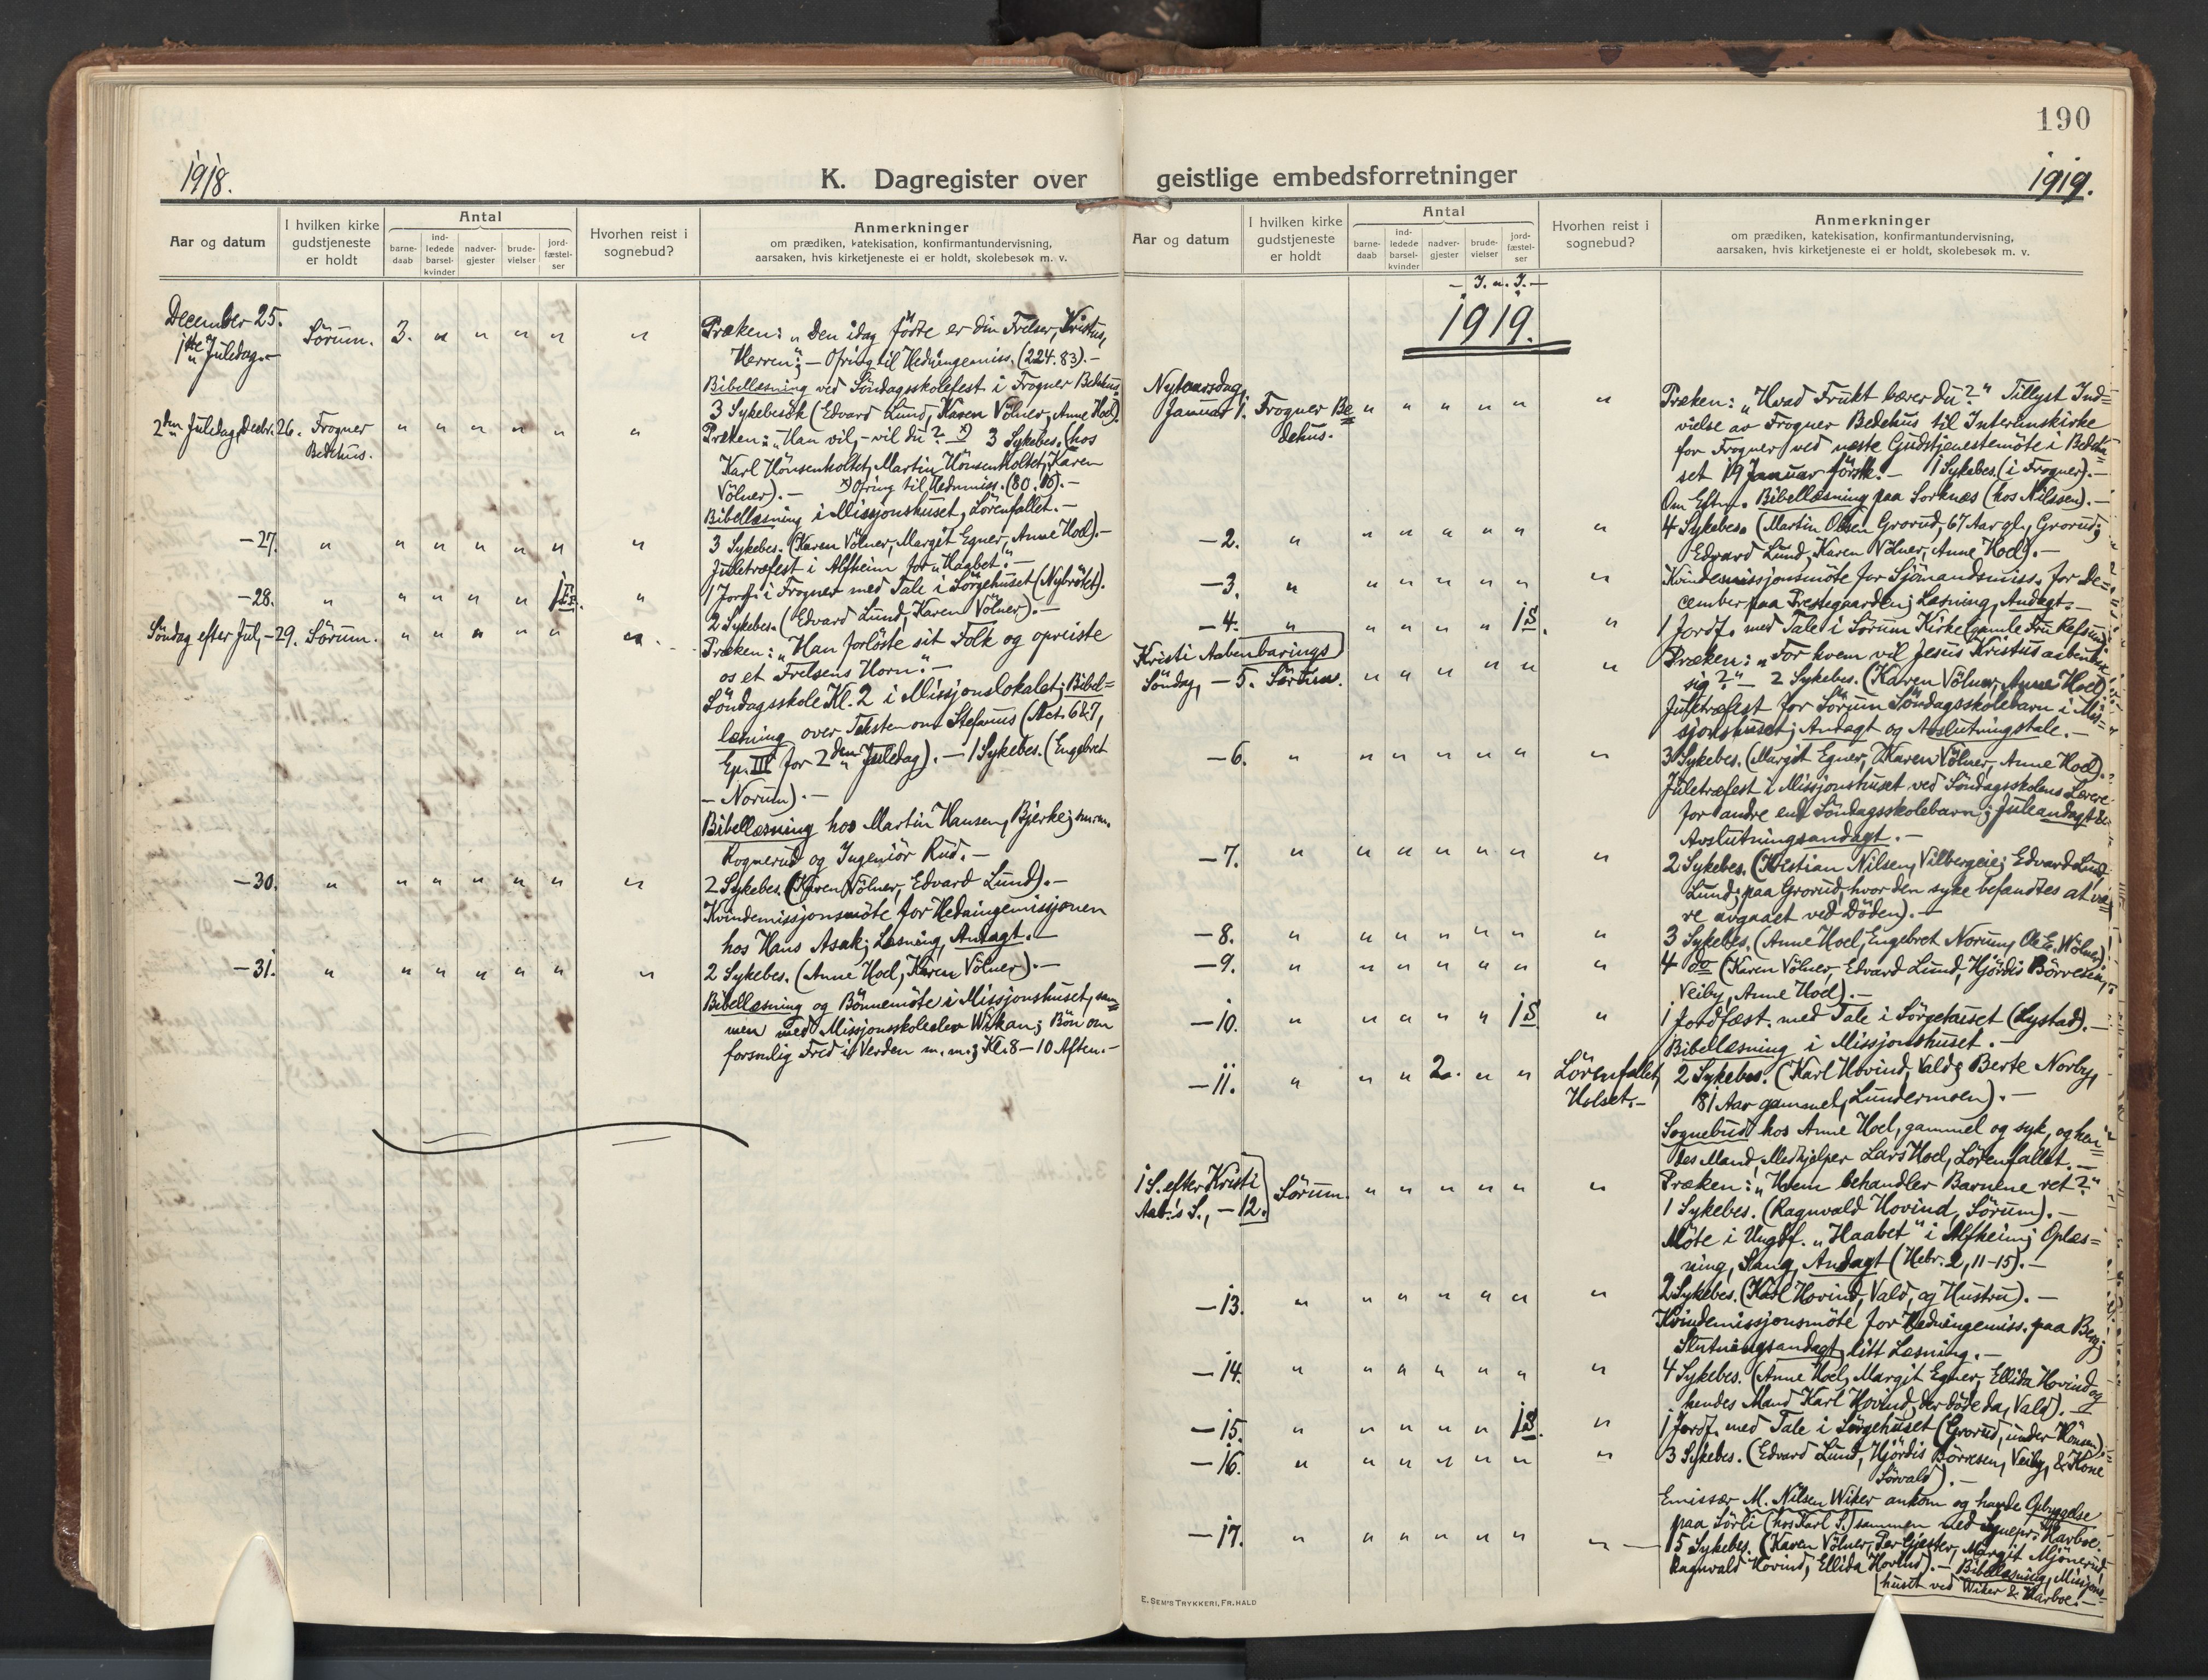 190
1918.
K. Dagregister over geistlige embedsforretninger
1919.
Aar og datum
I hvilken kirke gudstjeneste er holdt
Antal
barne-daab
ind-ledede barsel-kvinder
nadver-gjester
brude-vielser
jord-fæstel-ser
Hvorhen reist i sognebud?
Anmerkninger
om prædiken, katekisation, konfirmantundervisning,
aarsaken, hvis kirketjeneste ei er holdt, skolebesøk m. v.
December 25.
1ste Juledag.-
Sörum. 3. " " " " "
Præken: "Den idag födte er din Frelser, Kristus,
Herren"; - Ofring til Hedningemiss. (224.83). -
Bibellæsning ved Söndagsskolefest i Frogner Bedehus.
3 Sykebesök (Edvard Lund, Karen Völner, Anne Hoel).
2den Juledag, Decbr. 26. Frogner Bedehus. " " " " " "
Præken: "Han vil, - vil du? x) 3 Sykebes. (hos
Karl Hönsenholtet, Martin Hönsenholtet, Karen
Völner). - x) Ofring til Hedn.miss. (80.
Bibellæsning i Missjonshuset, Lörenfallet. -
-27. " " " " " " "
3 Sykebes. (Karen Völner, Margit Egner, Anne Hoel). -
Juletræfest i Alfheim for "Haabet". -
-28. " " " " " 1 Fr. "
1 Jordf. i Frogner med Tale i Sörgehuset (Nybrötet).
2 Sykebes. (Edvard Lund, Karen Völner). -
Söndag efter Jul, -29. Sörum. " " " " " "
Præken: "Han forlöste sit Folk og opreiste
os et Frelsens Horn". -
Söndagsskole Kl. 2 i Missjonslokalet; Bibel=
læsning over Teksten om Stefanus (Act. 6&7,
Ep. III for 2den Juledag). - 1 Sykebes. (Engebret
- Norum). -
Bibellæsning hos Martin Hansen, Bjerke;
Rognerud og Ingeniör Rud. -
-30. " " " " " " "
2 Sykebes. (Karen Völner, Edvard Lund). -
Kvindemissjonsmöte for Hedningemissjonen
hos Hans Asak; Læsning, Andagt. -
-31. " " " " " " "
2 Sykebes. (Anne Hoel, Karen Völner). -
Bibellæsning og Bönnemöte i Missjonshuset, sam=
men med Missjonsskoleelev Wikan; Bön om
Fred i Verden m. m.; Kl. 8 - 10 Aften. -
Aar og datum
I hvilken kirke gudstjeneste er holdt
Antal
barne-daab
ind-ledede barsel-kvinder
nadver-gjester
brude-vielser
jord-fæstel-ser
Hvorhen reist i sognebud?
Anmerkninger
om prædiken, katekisation, konfirmantundervisning,
aarsaken, hvis kirketjeneste ei er holdt, skolebesøk m. v.
- J. n. J. -
1919.
Nytaarsdag,
Januar 1. Frogner Be=
dehus. " " " " " "
Præken: "Hvad Frukt bærer du?" Tillyst Ind=
vielse av Frogner Bedehus til Interimskirke
for Frogner ved næste Gudstjenestemöte i Bedehu=
set 19 Januar förstk. - 1 Sykebes. (i Frogner). -
Om Eftm. Bibellæsning paa Sorknæs (hos Nilssen). -
-2. " " " " " " "
4 Sykebes. (Martin Olsen Grorud, 67 Aar gl., Grorud;
Edvard Lund, Karen Völner, Anne Hoel). -
-3. " " " " " " "
Kvindemissjonsmöte for Sjömandsmiss. for De=
cember paa Prestegaarden; Læsning, Andagt. -
-4. " " " " " 1 S. "
1 Jordf. med Tale i Sörum Kirke (gamle Fru Refsum).
Kristi Aabenbarings
Söndag, -5. Sörum. " " " " " "
Præken: "For hvem vil Jesus Kristus aabenbare
sig?" - 2 Sykebes. (Karen Völner, Anne Hoel).
Juletræfest for Sörum Söndagsskolebarn i Mis=
sjonshuset; Andagt og Avslutningstale. -
-6. " " " " " " "
3 Sykebes. (Margit Egner, Karen Völner, Anne Hoel).
Juletræfest i Missjonshuset ved Söndagsskolens Lærere
for andre end Söndagsskolebarn; Juleandagt &
Avslutningsandagt. -
-7. " " " " " " "
2 Sykebes. (Kristian Nilsen, Vilbergeie; Edvard Lund,
Lund; paa Grorud, hvor den syke befandtes at væ=
re avgaaet ved Döden). -
-8. " " " " " " "
3 Sykebes. (Anne Hoel, Engebret Norum, Ole E. Wölner).
-9. " " " " " " "
4 do (Karen Völner, Edvard Lund, Hjördis Börresen,
Veiby, Anne Hoel). -
-10. " " " " " 1 S. "
1 Jordfæst. med Tale i Sörgehuset (Lystad). -
Bibellæsning i Missjonshuset. -
-11. " " " 2. " " Lörenfallet,
Holset. -
2 Sykebes. (Karl Hovind, Vald; Berte Norby,
81 Aar gammel, Lundermoen). -
Sognebud hos Anne Hoel, gammel og syk, og hen=
des Mand, Medhjelper Lars Hoel, Lörenfallet. -
1 S. efter Kristi
Aab.'s S., -12. Sörum. " " " " " "
Præken: "Hvem behandler Barnene ret?"
1 Sykebes. (Ragnvald Hovind, Sörum). -
Möte i Ungdf. "Haabet" i Alfheim; Oplæs=
ning, Sang, Andagt (Hebr. 2, 11-15). -
-13. " " " " " " "
2 Sykebes. (Karl Hovind, Vald, og Hustru). -
Kvindemissjonsmöte for Hedningemiss. paa Berg;
Slutningsandagt, litt Læsning. -
-14. " " " " " " "
4 Sykebes. (Anne Hoel, Margit Egner, Ellida Hovind og
hendes Mand Karl Hovind, der döde da, Vald). -
-15. " " " " " 1 S. "
1 Jordf. med Tale i Sörgehuset (Grorud, under Hönsen).
-16. " " " " " " "
3 Sykebes. (Edvard Lund, Hjördis Börresen, Veiby, & Kone
Sörvald). -
Emissær M. Nilsen Wiker ankom og havde Opbyggelse
paa Sörli (hos Karl S.) sammen med Sognepr. Harboe.
-17. " " " " " " "
5 Sykebes. (Karen Völner, Per Gjester, Margit Mjönerud,
Ragnvald Hovind, Ellida Hovind). - Bibellæsning, Missjons=
huset ved Wiker & Harboe. -
E. SEM'S TRYKKERI, FR.HALD